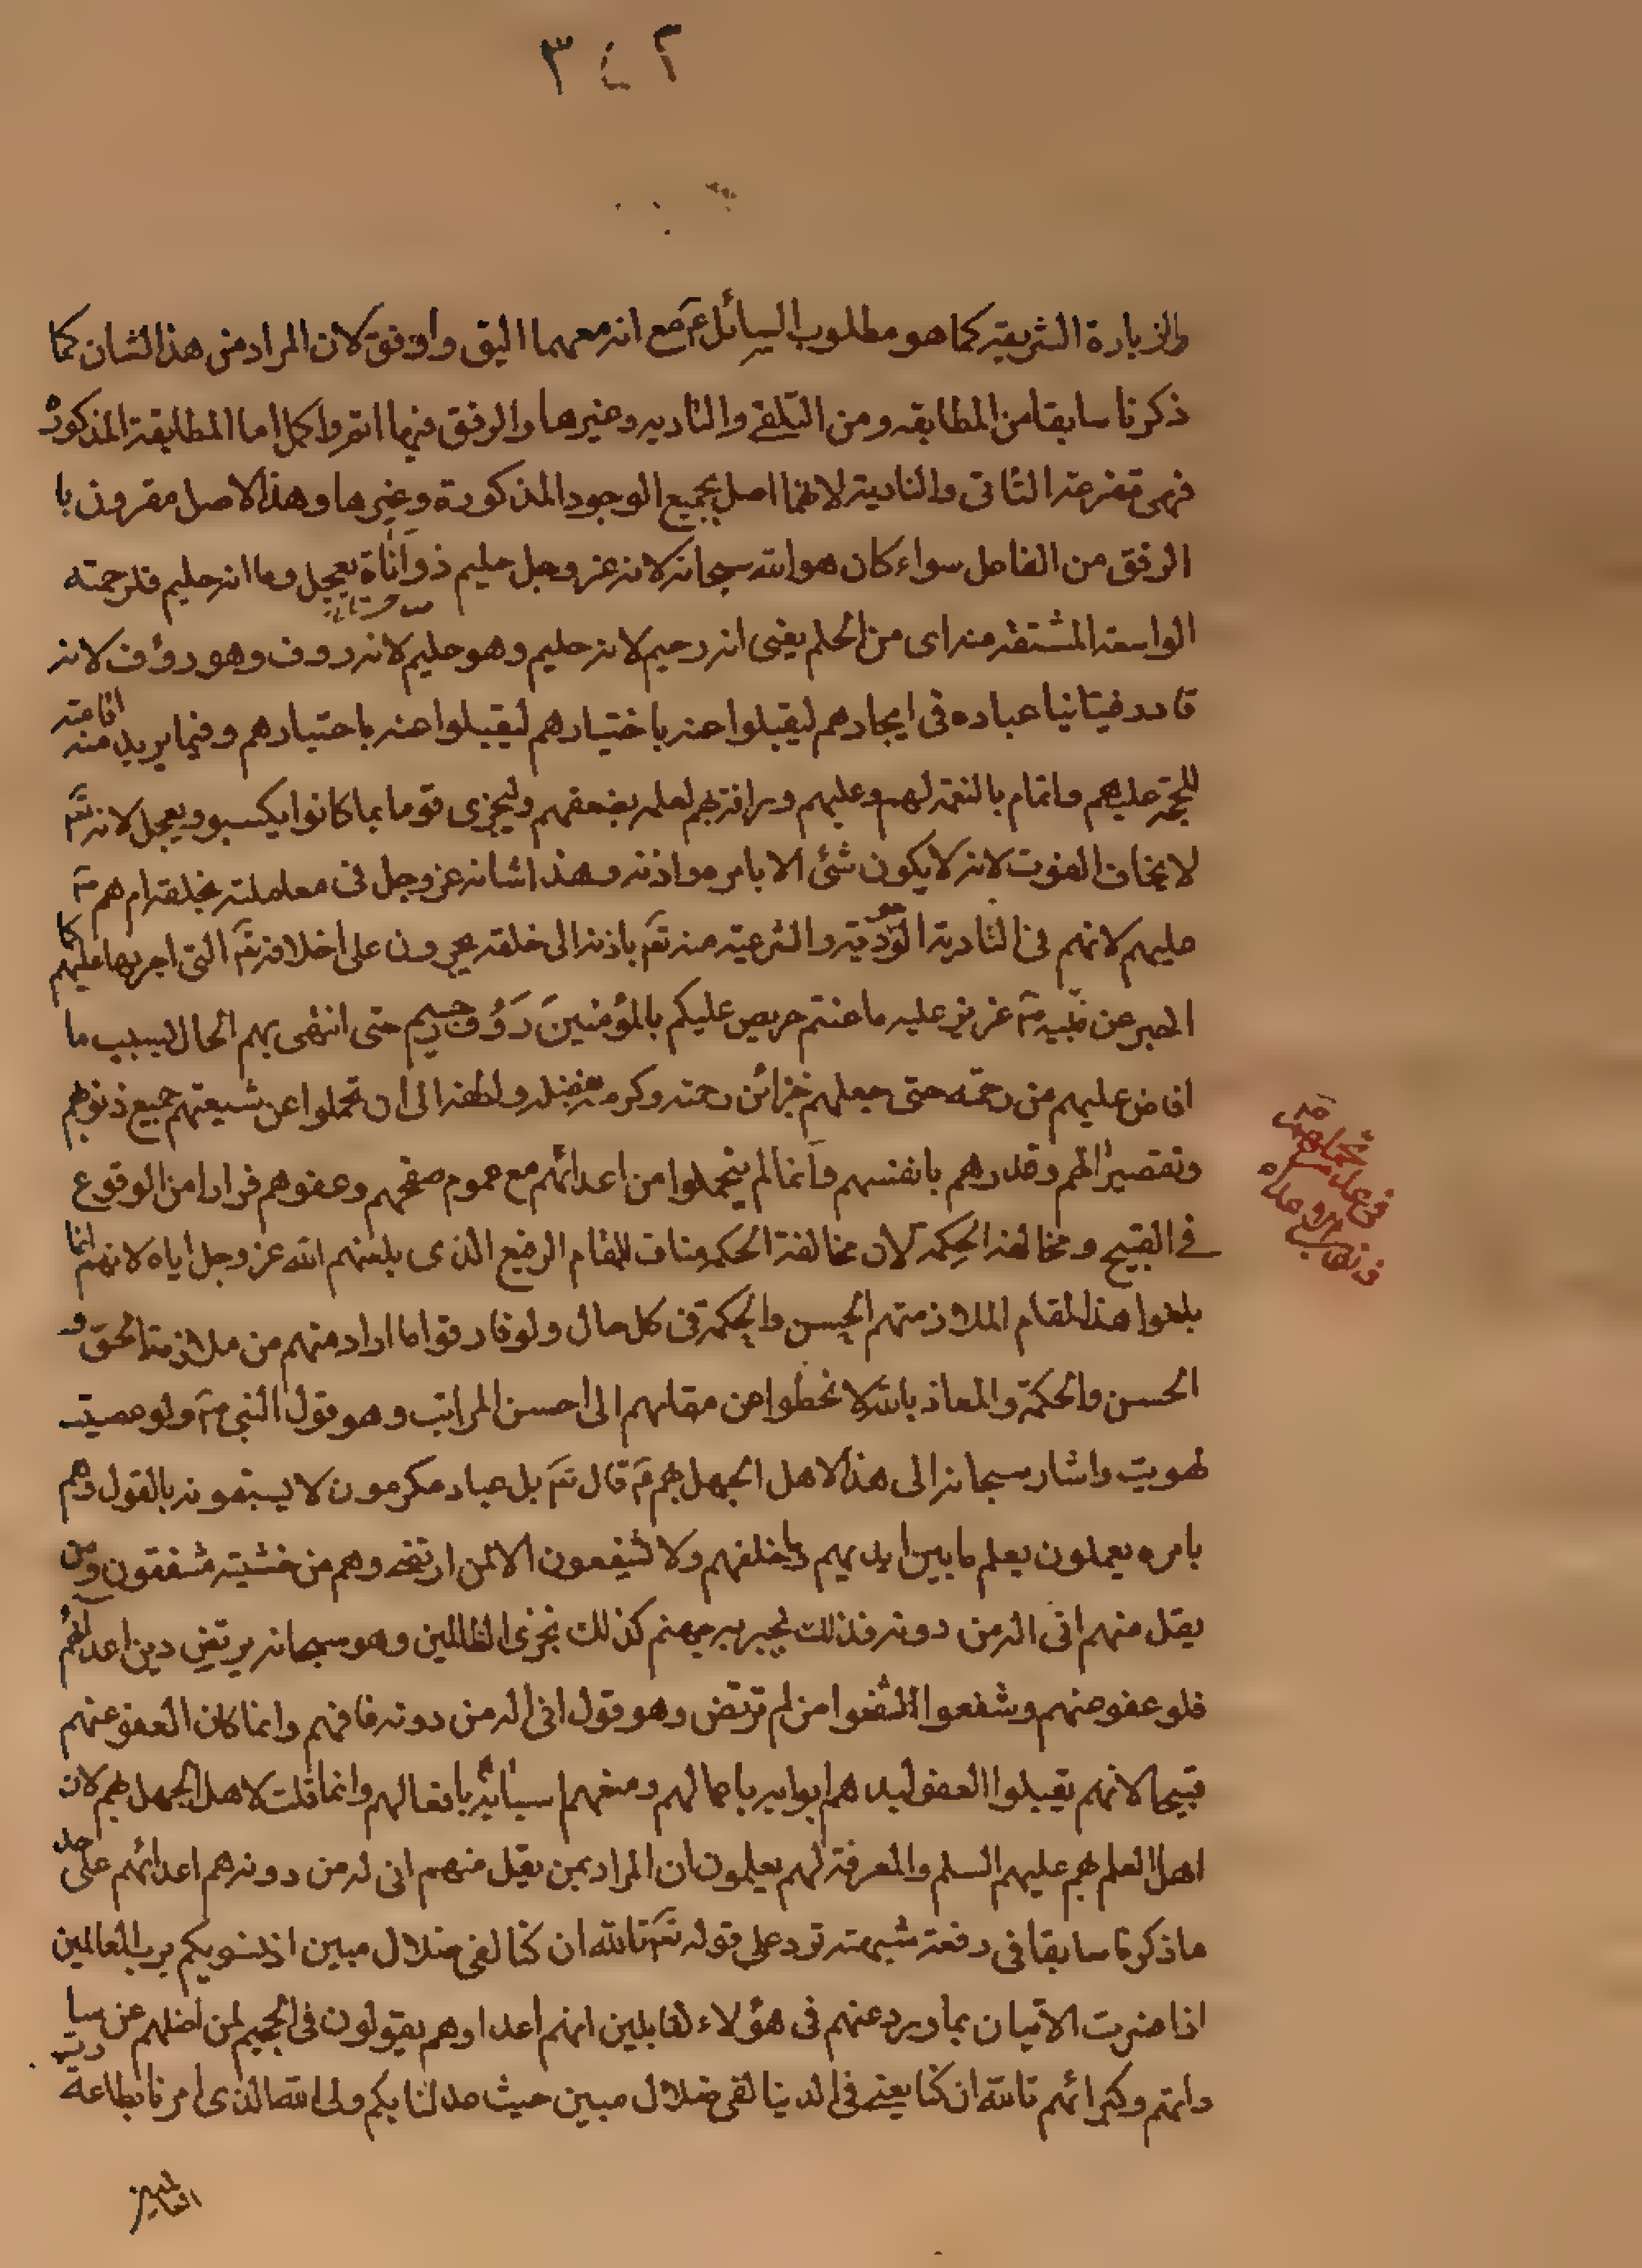 ٣٤٢
والزيارة الشريفة كما هو مطلوب السائل مع انه معهما اليق واوفق لان المراد من هذا الشان كما
ذكرنا سابقا من المطابقه ومن التلقى والتاديه وغيرها والرفق فيها اتم واكمل اما المطابقة المذكورة
فهى متفرعة الثانى والتادية لانها اصل بجميع الوجود المذكورة وغيرها وهذا الاصل مقرون با
الرفق من الفاعل سواء كان هو الله سبحانه لانه عز وجل حليم ذو اناة يعجل وما انه حليم فلرحمته
الواسعة المشتقة منه اى من الحلم يعنى انه رحيم لانه حليم وهو حليم لانه رووف وهو رؤف لانه
قادر عباده فى ايجادهم ليقبلوا عنه باختيارهم ليقبلوا عنه باختيارهم وفيما يريد منه اقامته
للحجة عليهم واتمام بالنعمة لهم وعليهم وبرافته بهم لعلمه بضعفهم وليجزى قوما بما كانوا يكسبو ويعجل لانه تع
لا يخاف الفوت لانه لا يكون شئ الا بامره واذنه وهذا شانه عز وجل فى معاملته بخلقه ام هم
عليهم لانهم فى التادية والشرعية منه تع باذنه الى خلقه يجرون على اخلاقه تع التى اجريها عليهم كما
اخبر عن نبيه ص عزيز عليه ما عنتم حريص عليكم بالمؤمنين رؤف رحيم حتى انتهى بهم الحال بسبب ما
افاض عليهم من رحمته حتى جعلهم خزائن رحمته وكرمه بفضله ولطفه الى ان تحملوا عن شيعتهم جميع ذنوبهم
وتقصيراتهم وقدرهم بانفسهم وانما لم يتحملوا من اعدائهم مع عموم صفحهم وعفوهم فرارا من الوقوع
فى القبيح ومخالفة الحكمة لان مخالفة الحكمة مناف للمقام الرفيع الذى بلغهم الله عز وجل اياه لانهم انما
بلغوا هذا المقام الملازمتهم الحسن والحكمة فى كل حال ولو فارقوا ما اراد منهم من ملازمة الحق و
الحسن والحكمة والمعاذ بالله لانحطوا من مقامهم الى احسن المراتب وهو قول النبى ص ولو عصيت
لهويت واشار سبحانه الى هذا لاهل الجهل بهم قال تع بل عباد مكرمون لا يسبقونه بالقول وهم
بامره يعملون يعلم ما بين ايديهم وما خلفهم ولا يشفعون الا لمن ارتضى وهم من خشيته مشفقون ومن
يقل منهم انى اله من دونه فذلك نجزيه جهنم كذلك نجزى الظالمين وهو سبحانه يرتضى دين اعدائهم
فلو عفو عنهم وشفعوا لشفعوا من لم ترتض وهو قول انى اله من دونه فافهم وانما كان العفو عنهم
قبيحا لانهم يقبلوا العفو ابوابه باعمالهم ومنعهم اسبابه بافعالهم وانما قلت لاهل الجهل بهم لان
اهل العلم بهم عليهم السلم والمعرفة لهم يعلمون ان المراد بمن يقل منهم انى اله من دونه هم اعدائهم على حد
ما ذكرنا سابقا فى دفعة شبهة ترد على قوله تع تالله ان كنا لفى ضلال مبين اذ نسويكم برب العالمين
اذا ضربت الآيتان بما ورد عنهم فى هؤلاء القايلين انهم اعداوهم يقولون فى الجحيم لمن اضلهم عن سا
داتهم وكبرائهم تالله ان كنا يعنى فى الدنيا لفى ضلال مبين حيث عدلنا بكم ولى الله الذى امرنا بطاعة